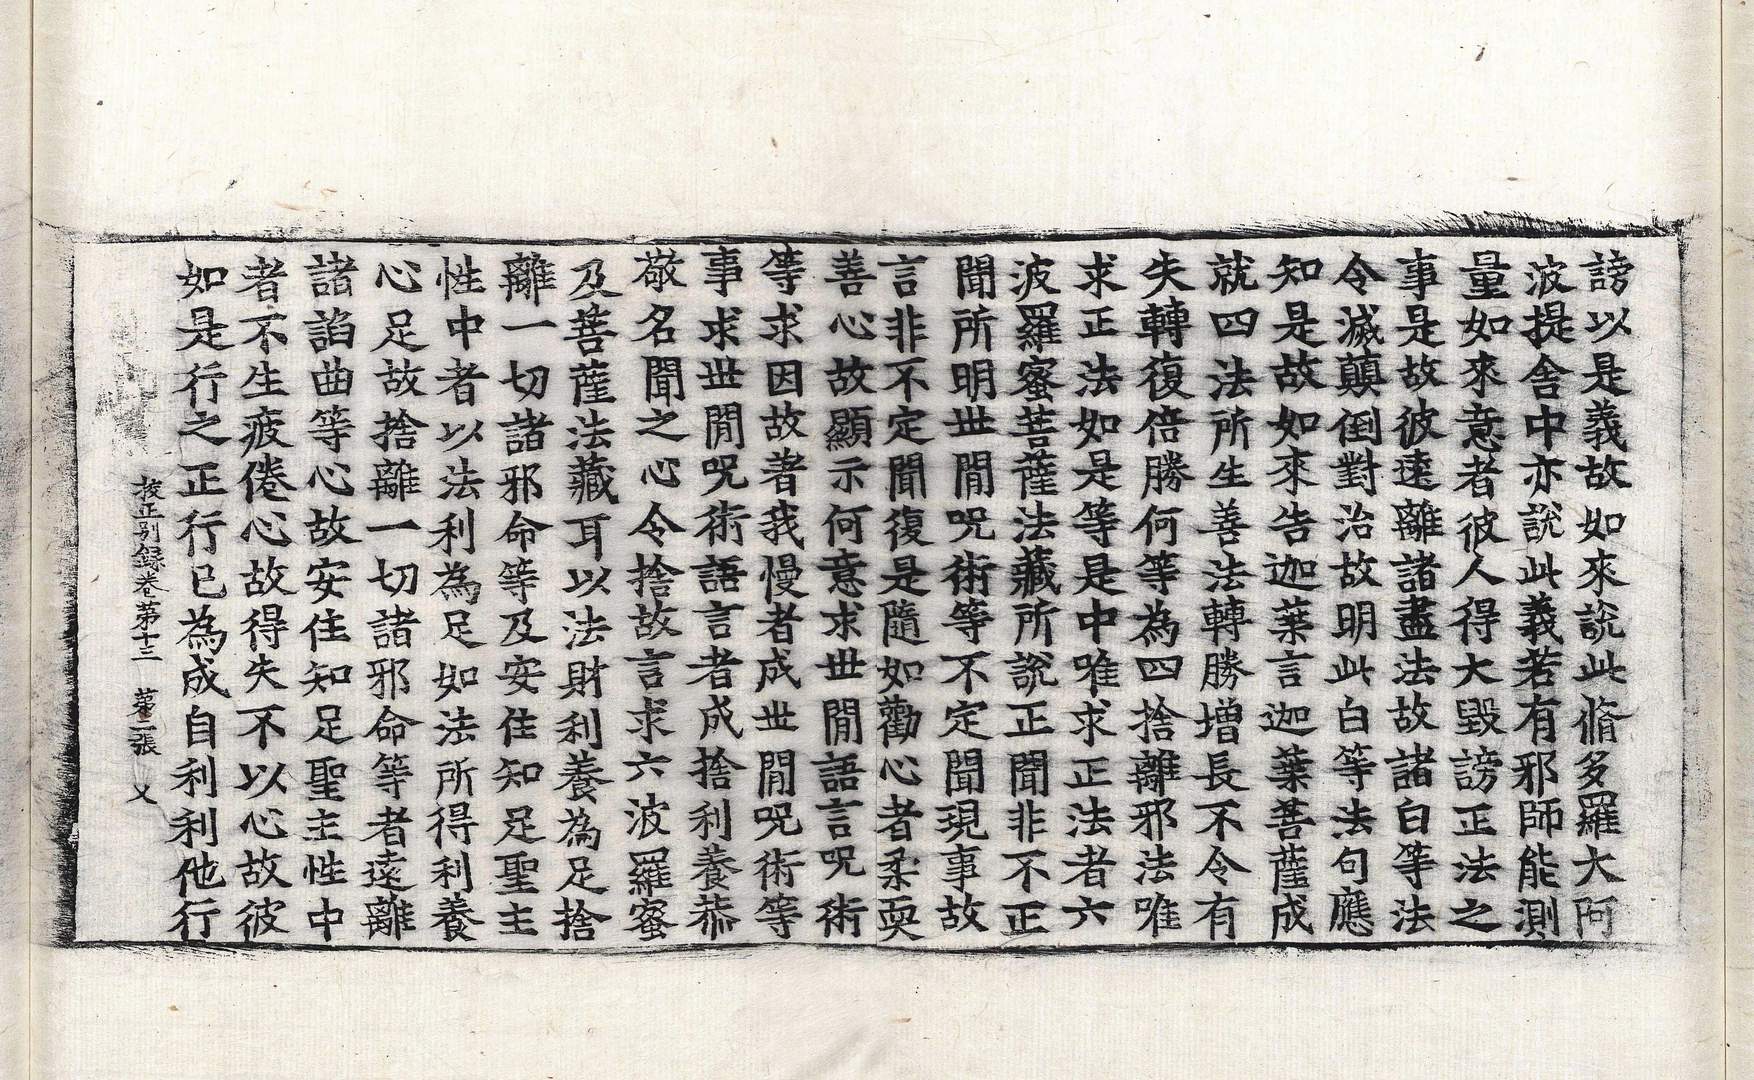 謗以是義故如來說此脩多羅大阿
波提舍中亦說此義若有邪師能測
量如來意者彼人得大毀謗正法之
事是故彼遠離諸盡法故諸白等法
令滅顛倒對治故明此白等法句應
知是故如來告迦葉言迦葉菩薩成
就四法所生善法轉勝增長不令有
失轉復倍勝何等為四捨離邪法唯
求正法如是等是中唯求正法者六
波羅蜜菩薩法藏所說正聞非不正
聞所明世間呪術等不定聞現事故
言非不定聞復是隨如勸心者柔耎
善心故顯示何意求世間語言呪術
等求因故者我慢者成世間呪術等
事求世間呪術語言者成捨利養恭
敬名聞之心令捨故言求六波羅蜜
及菩薩法藏耳以法財利養為足捨
離一切諸邪命等及安住知足聖主
性中者以法利為足如法所得利養
心足故捨離一切諸邪命等者遠離
諸諂曲等心故安住知足聖主性中
者不生疲倦心故得失不以心故彼
如是行之正行已為成自利利他行
挍正別錄卷第十三　第二張　乂